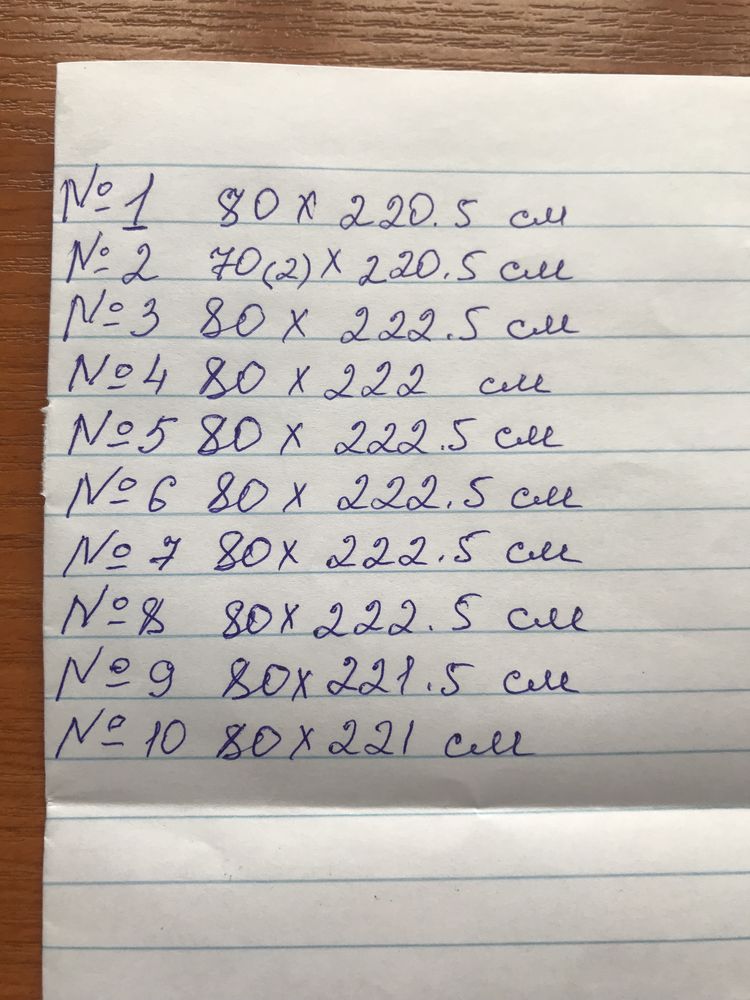 №1 80 х 220.5 см
№2 70(2) х 220.5 см
№3 80 х 222.5 см
№4 80 х 222 см
№5 80 х 222.5 см
№6 80 х 222.5 см
№7 80х 222.5 см
№8 80х 222.5 см
№9 80х221.5 см
№10 80х221 см